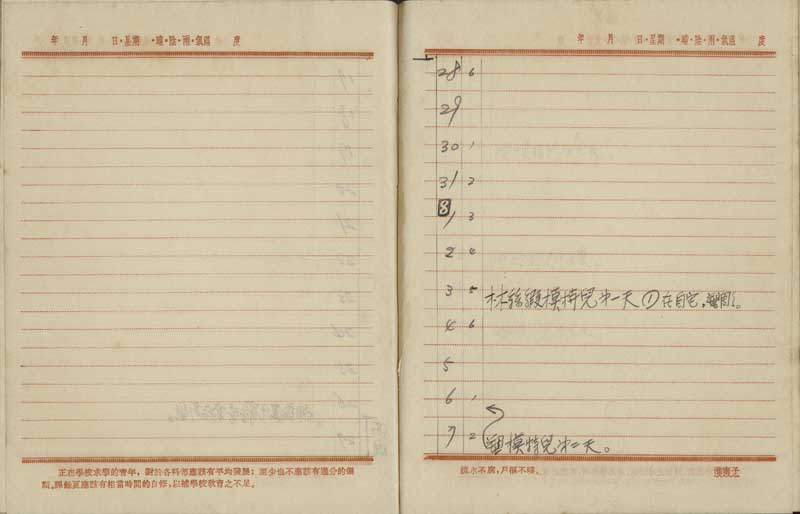 年 月 日•星期 •晴•陰•雨•氣溫 度
正在學校求學的青年，對於各科學應該有平均發展；至少也不應該有過分的偏
課餘更應該有相當時間的自修，以補學校教育之不足。
年 月 日•星期 •晴•陰•雨•氣溫 度
28 6
29
30 1
31 2
8
1 3
2 4
3 5 林 模特兒第一天 ① 在自宅，塑
4 6
5
6 1
7 2 塑模特兒第二天。
流水不腐，戶樞不蠹。